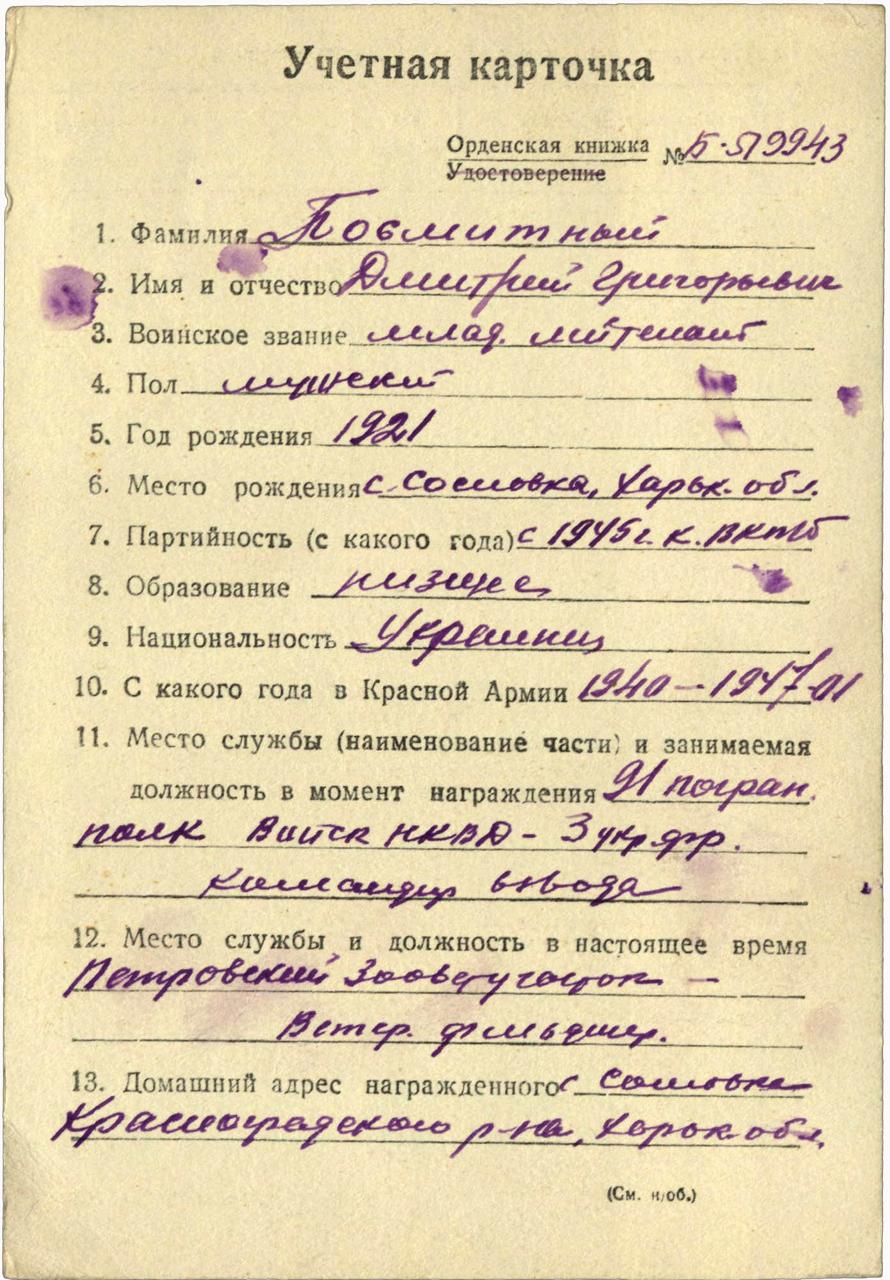 Учетная карточка
Орденская книжка № Б-519943
Удостоверение
1. Фамилия Повмитный
2. Имя и отчество Дмитрий Григорьевич
3. Воинское звание млад. лейтенант
4. Пол мужский
5. Год рождения 1921
6. Место рождения с. Сосновка, Харьк. обл.
7. Партийность (с какого года) с 1945 г. к. ВКПб
8. Образование низшее
9. Национальность Украинец
10. С какого года в Красной Армии 1940 — 1947-01
11. Место службы (наименование части) и занимаемая
должность в момент награждения 91 погран.
полк Войск НКВД – 3 укр. фр.
командир взвода
12. Место службы и должность в настоящее время
Петровский Зооветучасток —
Ветер. фельдшер.
13. Домашний адрес награжденного с. Сосновка
Красноградского р-на, Харьк обл.
(См. н/об.)